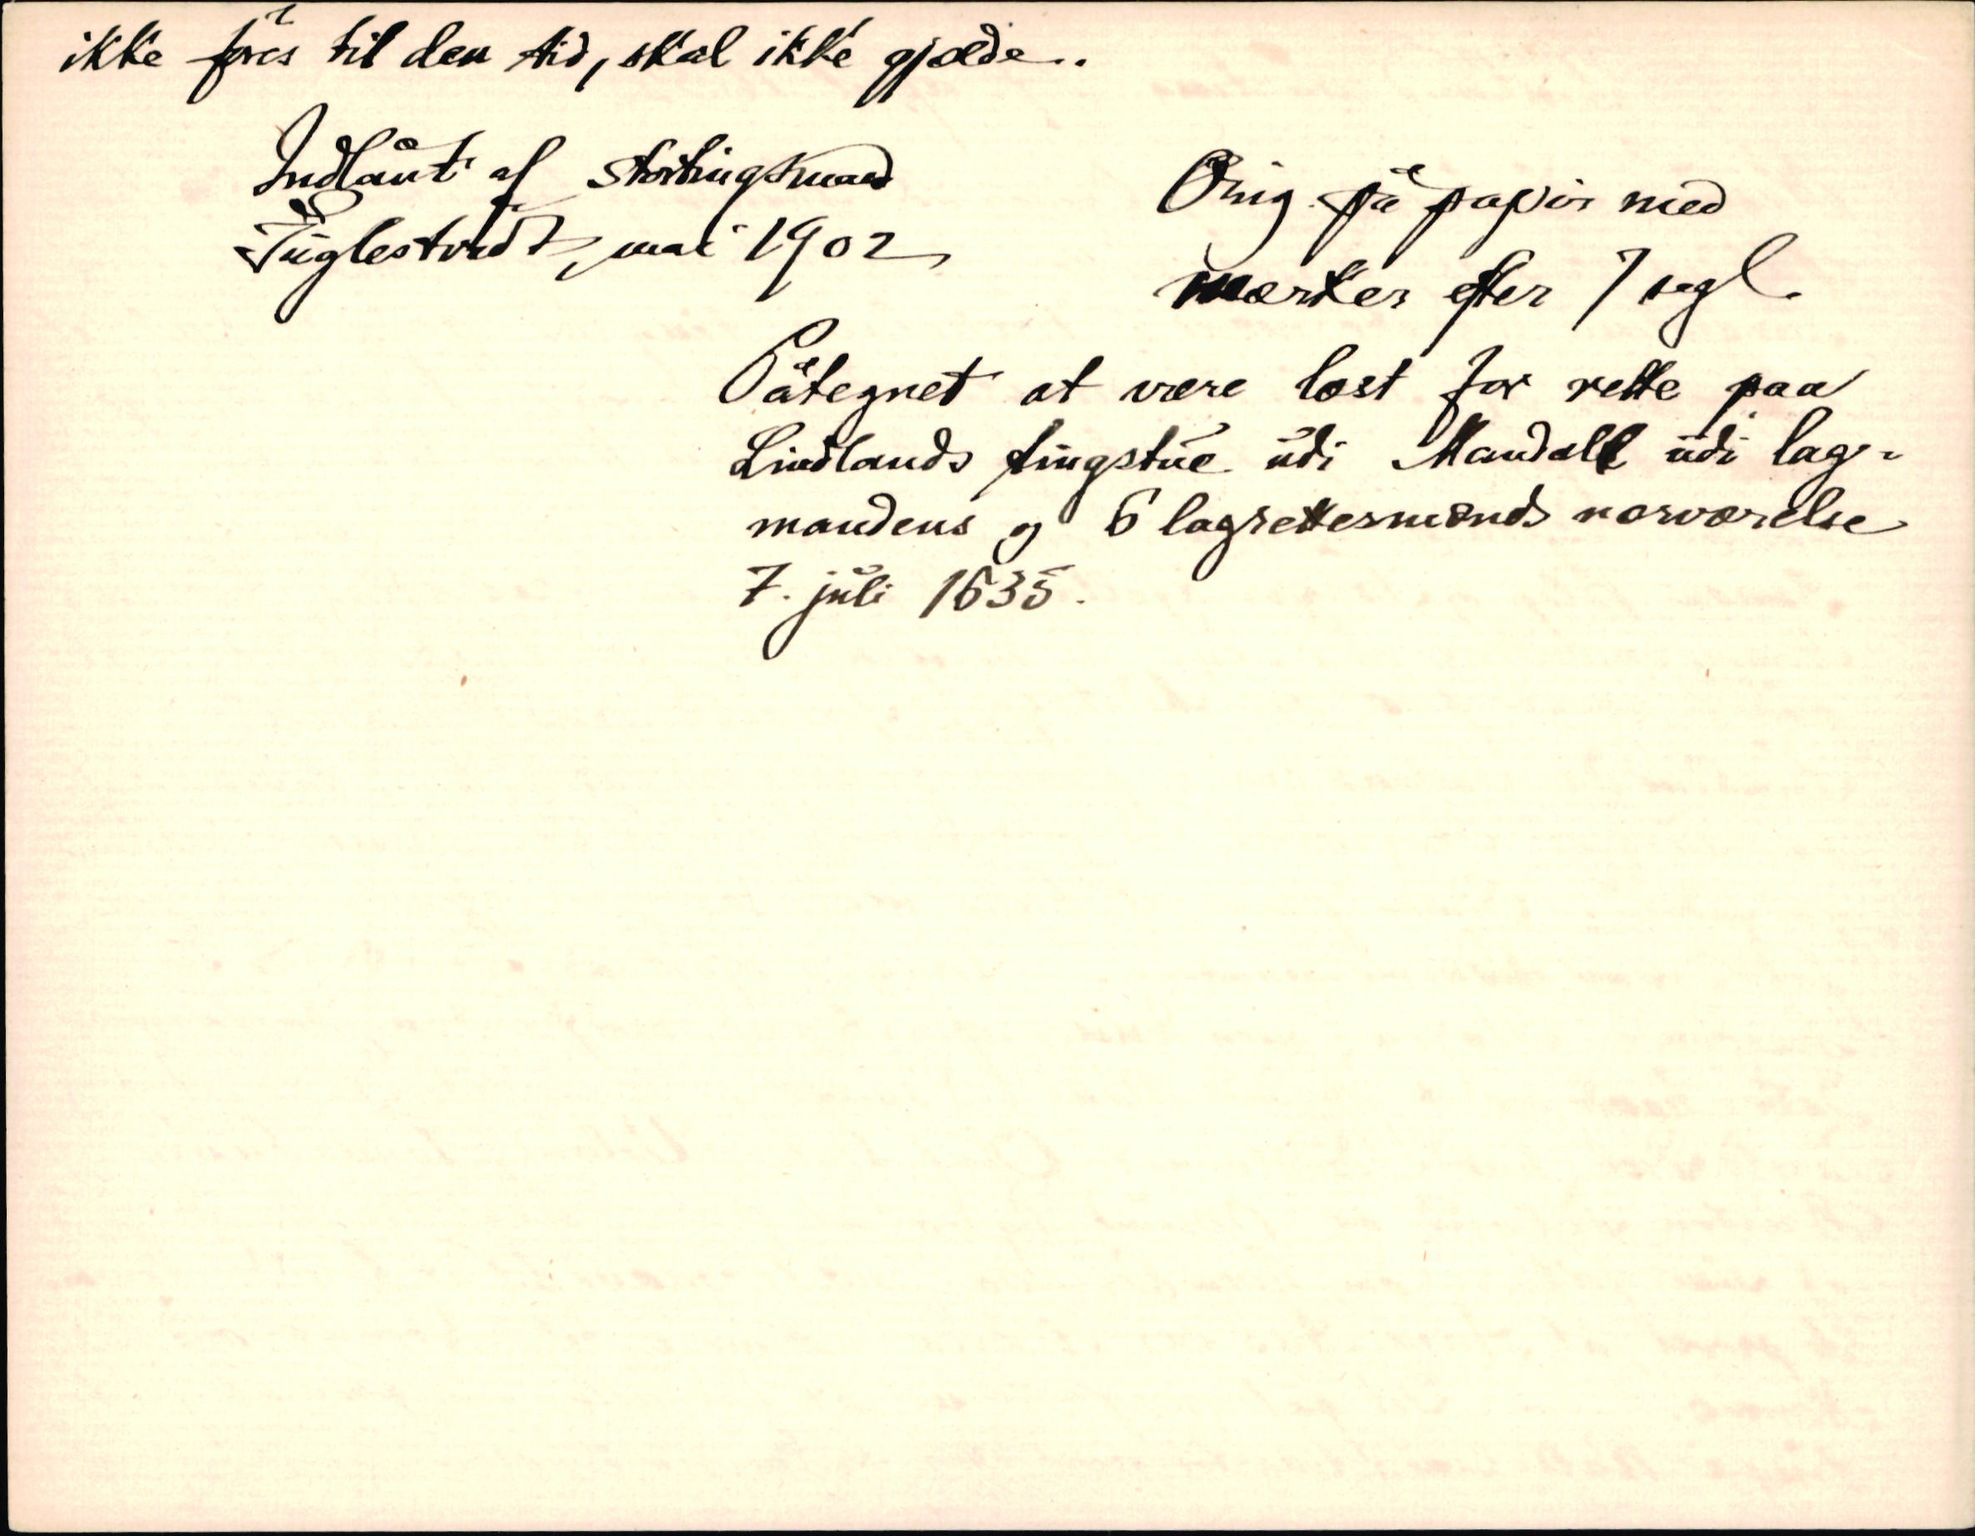 ikke føres til den tid, skal ikke gjælde.
Indlånt af stortingsmand
Fuglestvedt, mai 1902
Orig. på papir med
mærker efter 7 segl.
Påtegnet at være læst for rette paa
Lindlands tingstue udi Mandall udi lag-
mandens og 6 lagrettesmænds nærværelse
7. juli 1635.